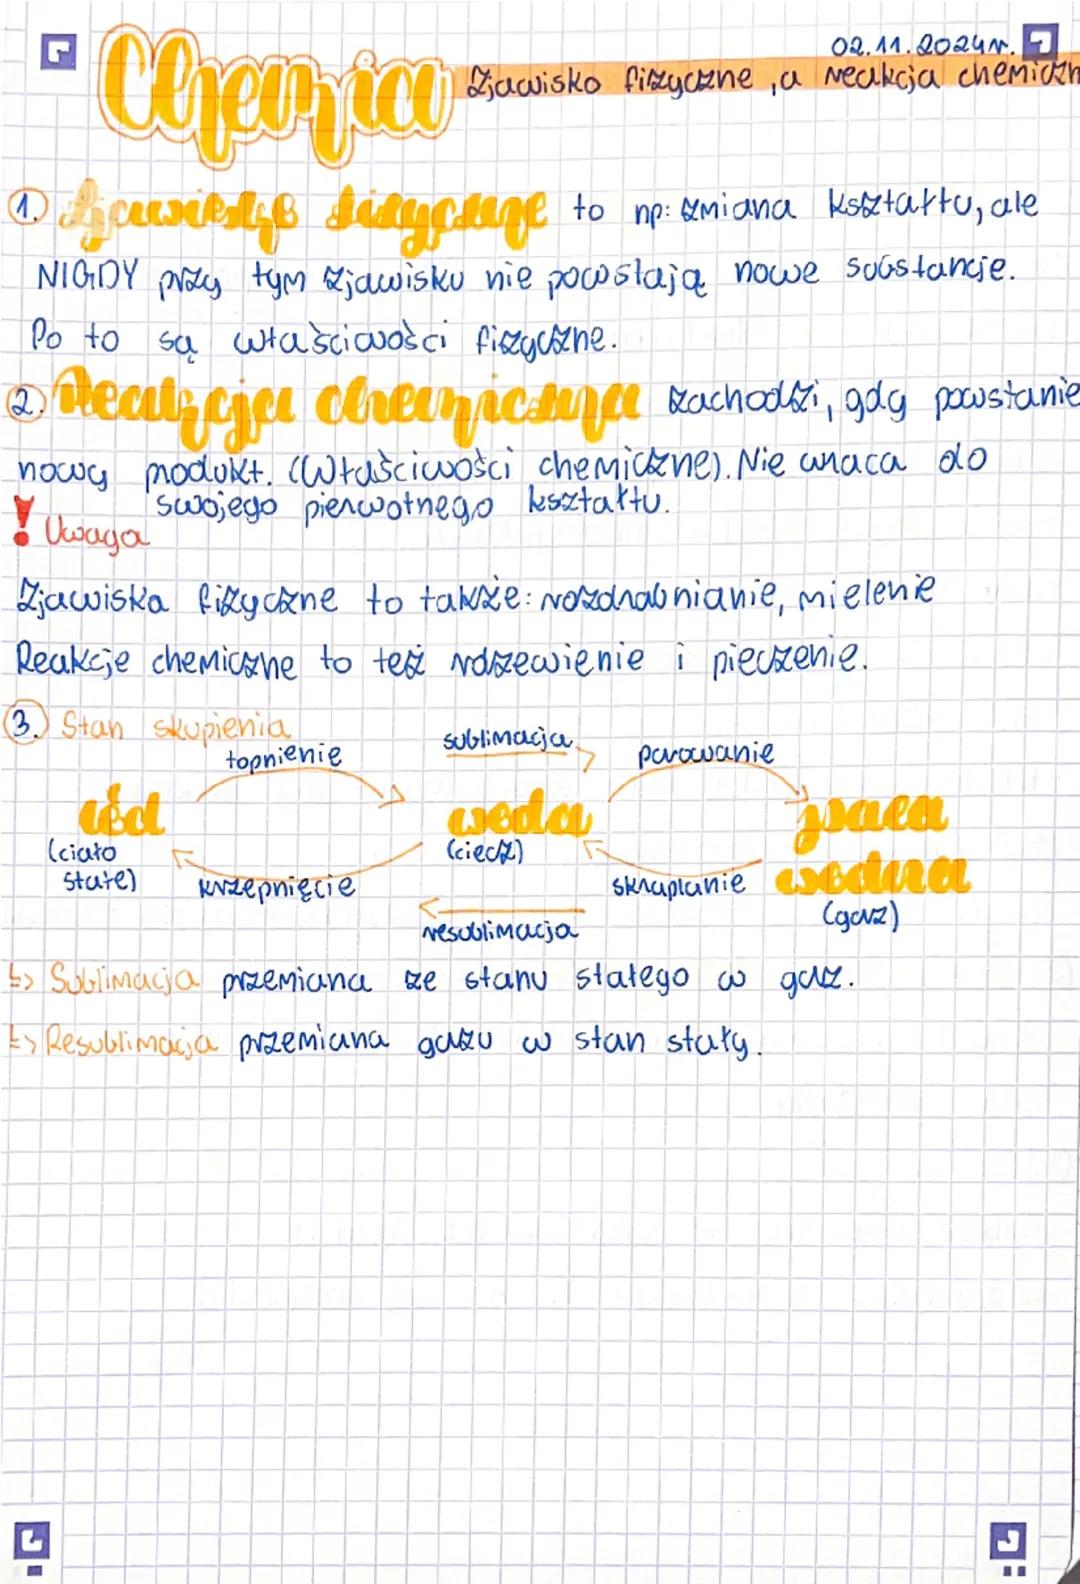 02.11.2024r.
Chemia Zjawisko fizyczne, a reakcja chemiczn
1. Zjawisko fizyczne to np: zmiana kształtu, ale
NIGDY przy tym zjawisku nie powstają nowe substancje.
Po to są właściwości fizyczne.
2. Reakcja chemiczna zachodzi, gdy powstanie
nowy produkt. (Właściwości chemiczne). Nie wraca do
swojego pierwotnego kształtu.
! Uwaga
Zjawiska fizyczne to także: rozdrabnianie, mielenie
Reakcje chemiczne to też rdzewienie i pieczenie.
3. Stan skupienia
topnienie sublimacja parowanie
lód woda para
(ciało (ciecz) wodna
stałe) krzepnięcie skraplanie (gaz)
resublimacja
↳> Sublimacja przemiana ze stanu stałego w gaz.
↳> Resublimacja przemiana gazu w stan stały.